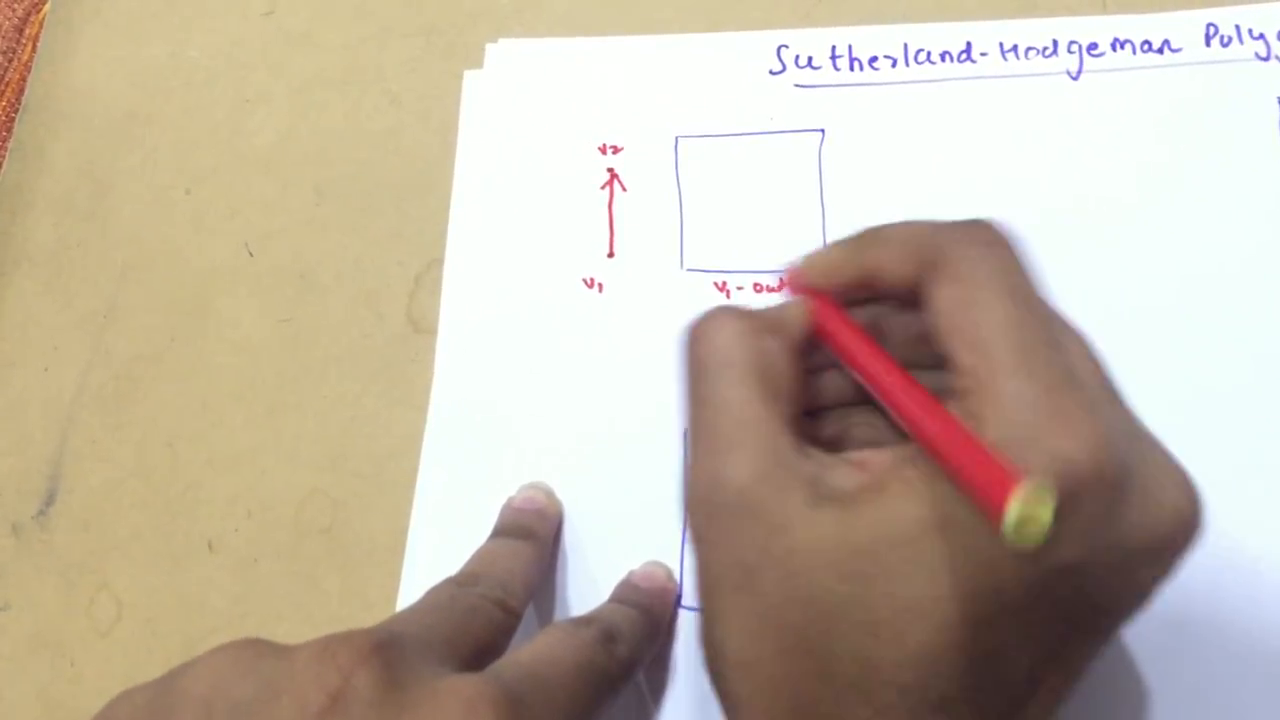 Sutherland-Hodgeman
v2
v1
v1 - out